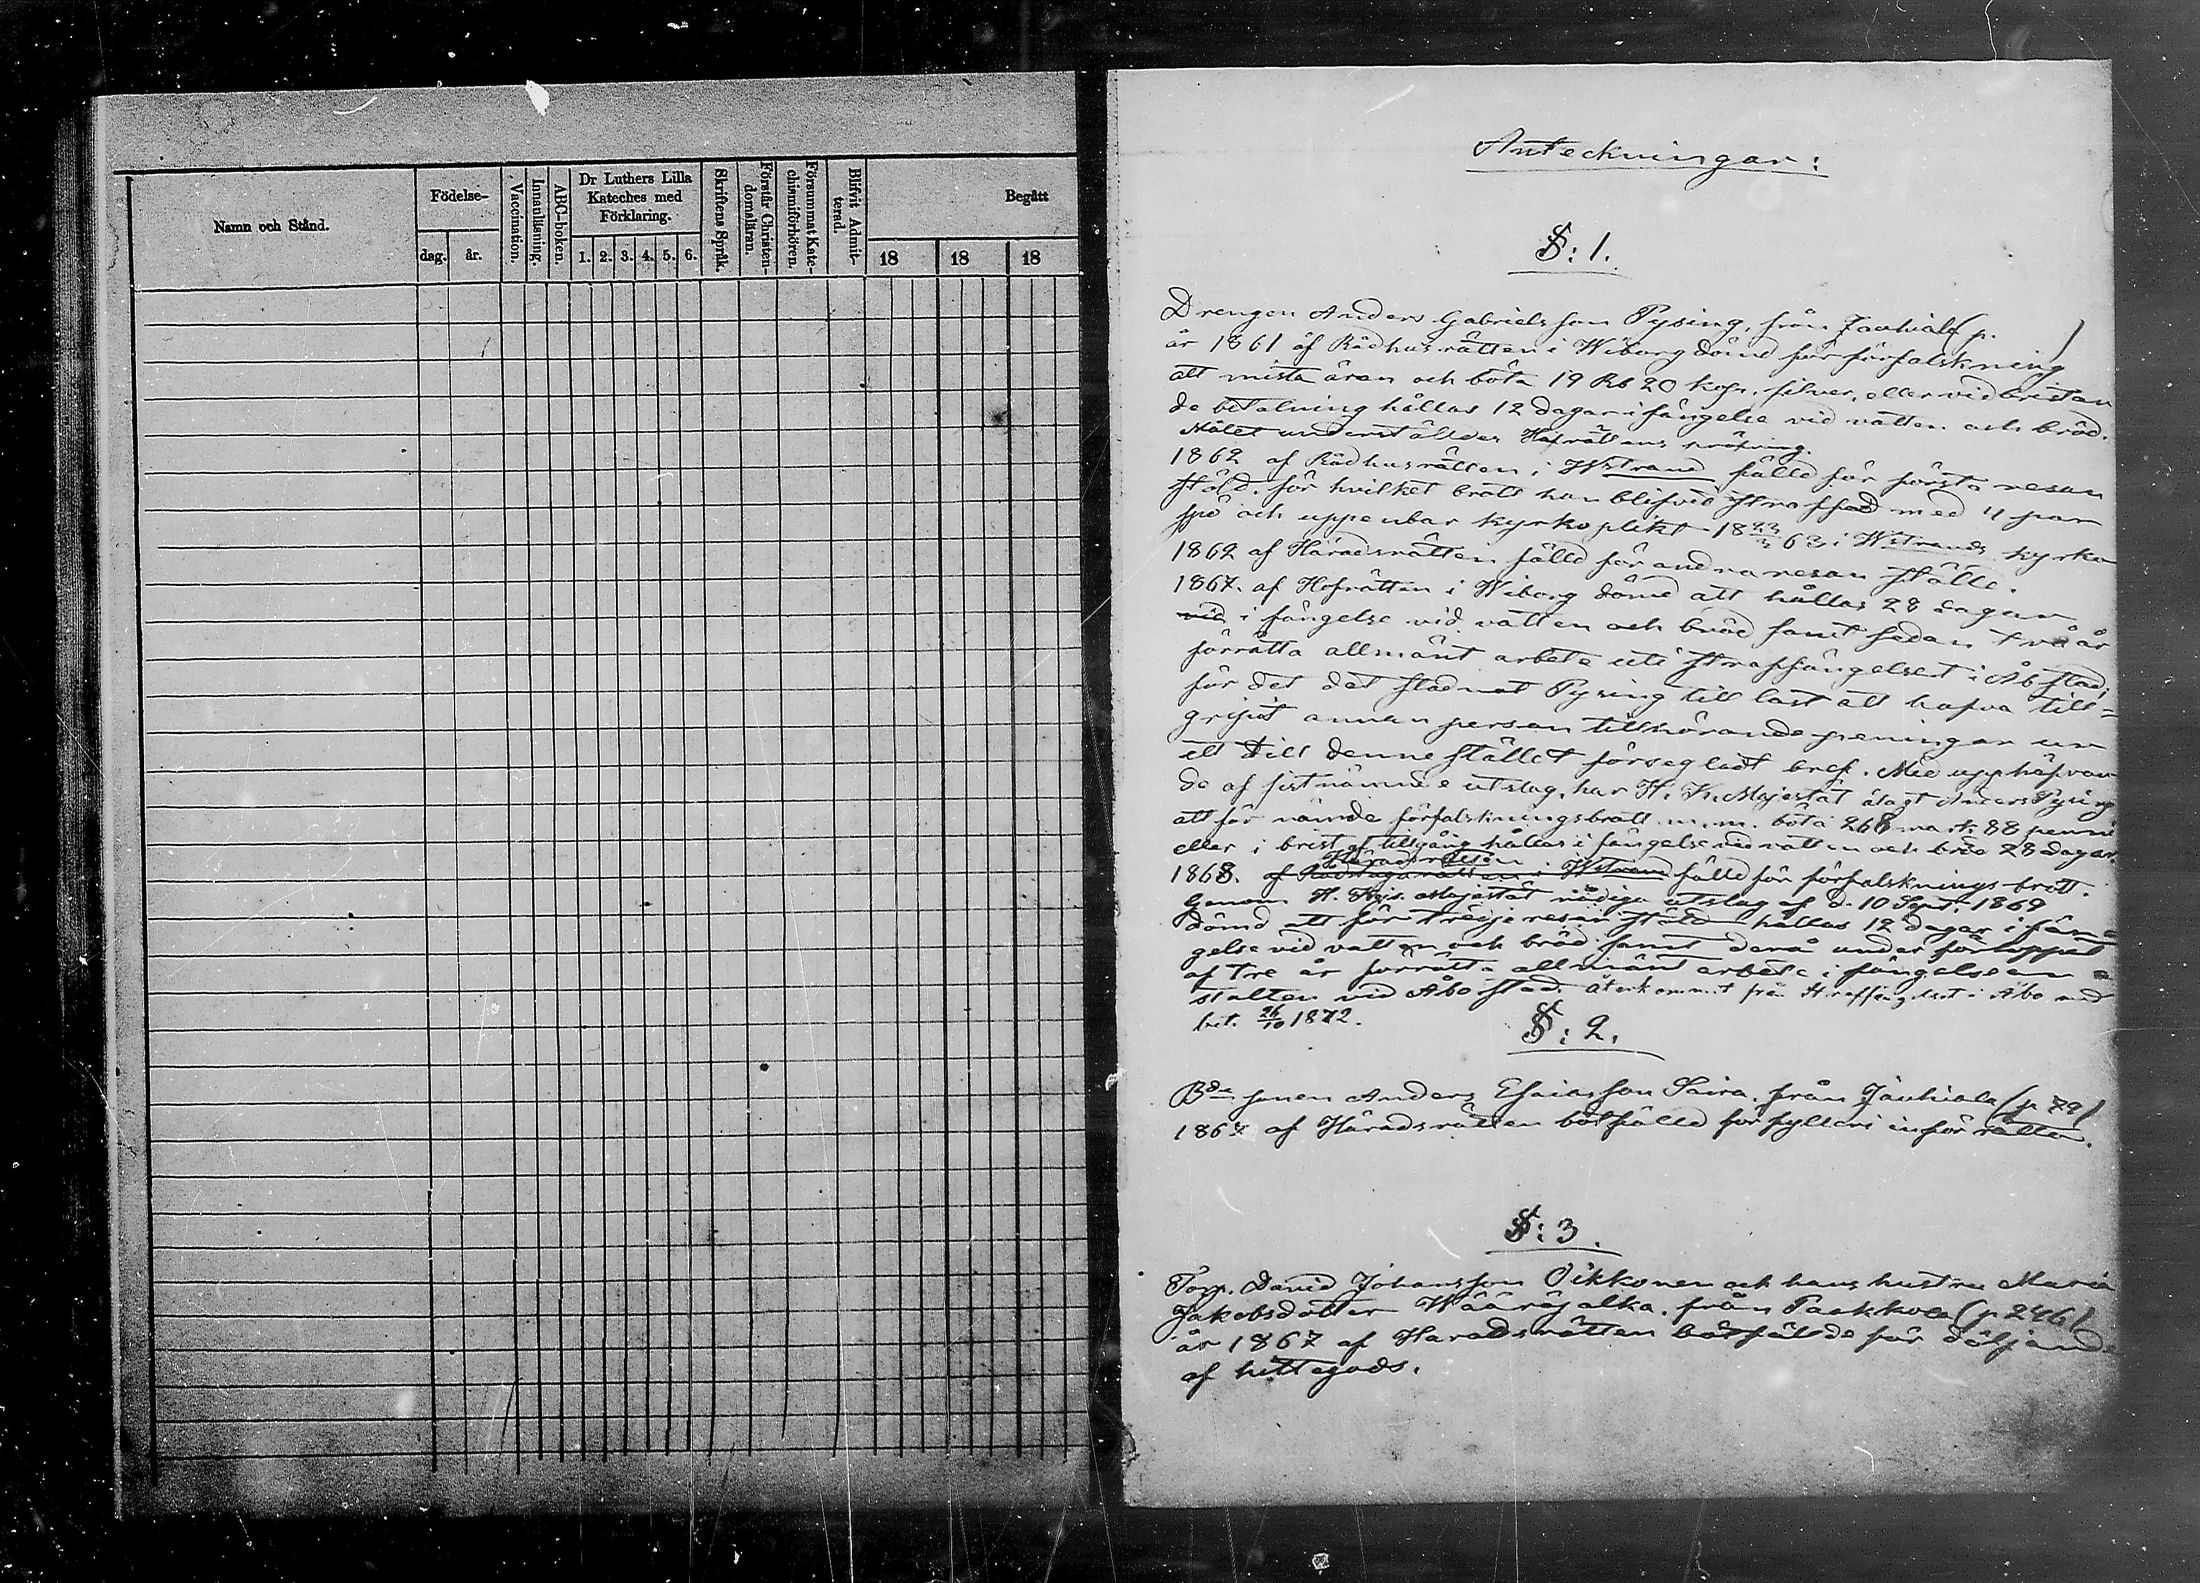 Namn och Stånd.
Födelse-
dag.
år.
Vaccination.
Innanläsning.
ABC-boken.
Dr Luthers Lilla
Kateches med
Förklaring.
1. 2. 3. 4. 5. 6.
Skriftens Språk.
Förstår Christen-
domsläran.
Försummat Kate-
chismiförhören.
Blifvit Admit-
terad.
Begått
18 18 18
Anteckningar:
§: 1.
Drengen Anders Gabrielsson Pysing, från Jauhiala (p. )
år 1861 af Rådhusrätten i Wiborg dömd för förfalskning
att mista äran och böta 19 Rb 20 kop. silver, eller vid bristan
de betalning hållas 12 dagar i fängelse vid vatten och bröd.
Målet underställdes Hofrättens pröfning.
1862 af Rådhusrätten i Wstrand fälld för första resan
stöld, för hvilket brott han blifvid straffad med 4 par
spö och uppenbar kyrkoplikt 18 23/3 63 i Wstrands kyrka
1862 af Häradsrätten fälld för andra resan stöld.
1867. af Hofrätten i Wiborg dömd att hållas 28 dagar
vid i fängelse vid vatten och bröd samt sedan två år
förrätta allmänt arbete uti straffängelset i Åbo stad,
för det det stadnat Pysing till last att hafva till-
gripit annan person tillhörande peningar ur
ett till denne stället försegladt bref. Med upphäfvan
de af sistnämnde utslag, har H. K. Majestät ålagt Anders Pysing
att för nämde förfalskningsbrott m.m. böta 268 mark 88 penni
eller i brist af tillgång hållas i fängelse vid vatten och bröd 28 dagar.
Häradsrätten
1868. af Rådstugurätten i Wstrand fälld för förfalsknings brott.
Genom H. Kejs. Majestät nådiga utslag af d. 10 Sept. 1869
dömd att för tredje resan stöld hållas 12 dagar i fän-
gelse vid vatten och bröd samt derå under förloppet
af tre år förrätta allmänt arbete i fängelse an-
stalten vid Åbo stad. Återkommit från Straffängelset i Åbo med
bet. 26/10 1872.
§: 2.
Bde sonen Anders Esaiasson Saira, från Jauhiala (p 79)
1867 af Häradsrätten botfälld för fylleri inför rätten.
§: 3.
Torp. David Johansson Pikkonen och hans hustru Maria
Jakobsdotter Wääräjalka, från Paakkola (p 246)
år 1867 af Haradsrätten botfällde för döljande
af hittegods.